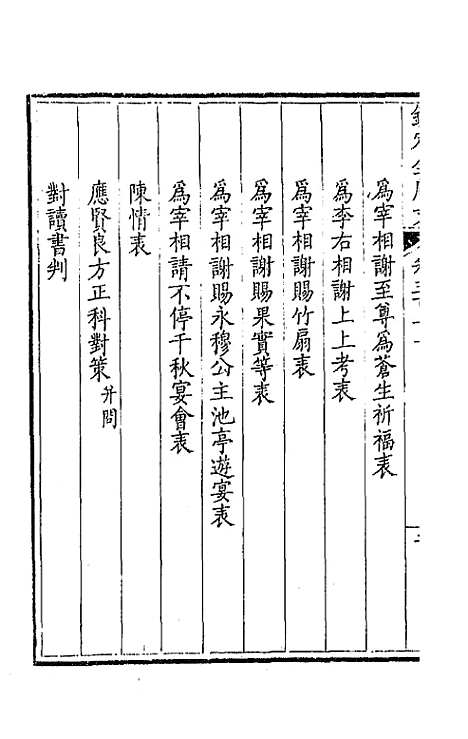 為宰相謝至尊為蒼生祈福表
為李右相謝上上考表
為宰相謝賜竹扇表
為宰相謝賜果實等表
為宰相謝賜永穆公主池亭遊宴表
為宰相請不停千秋宴會表
陳情表
應賢良方正科對策并問
對讀書判